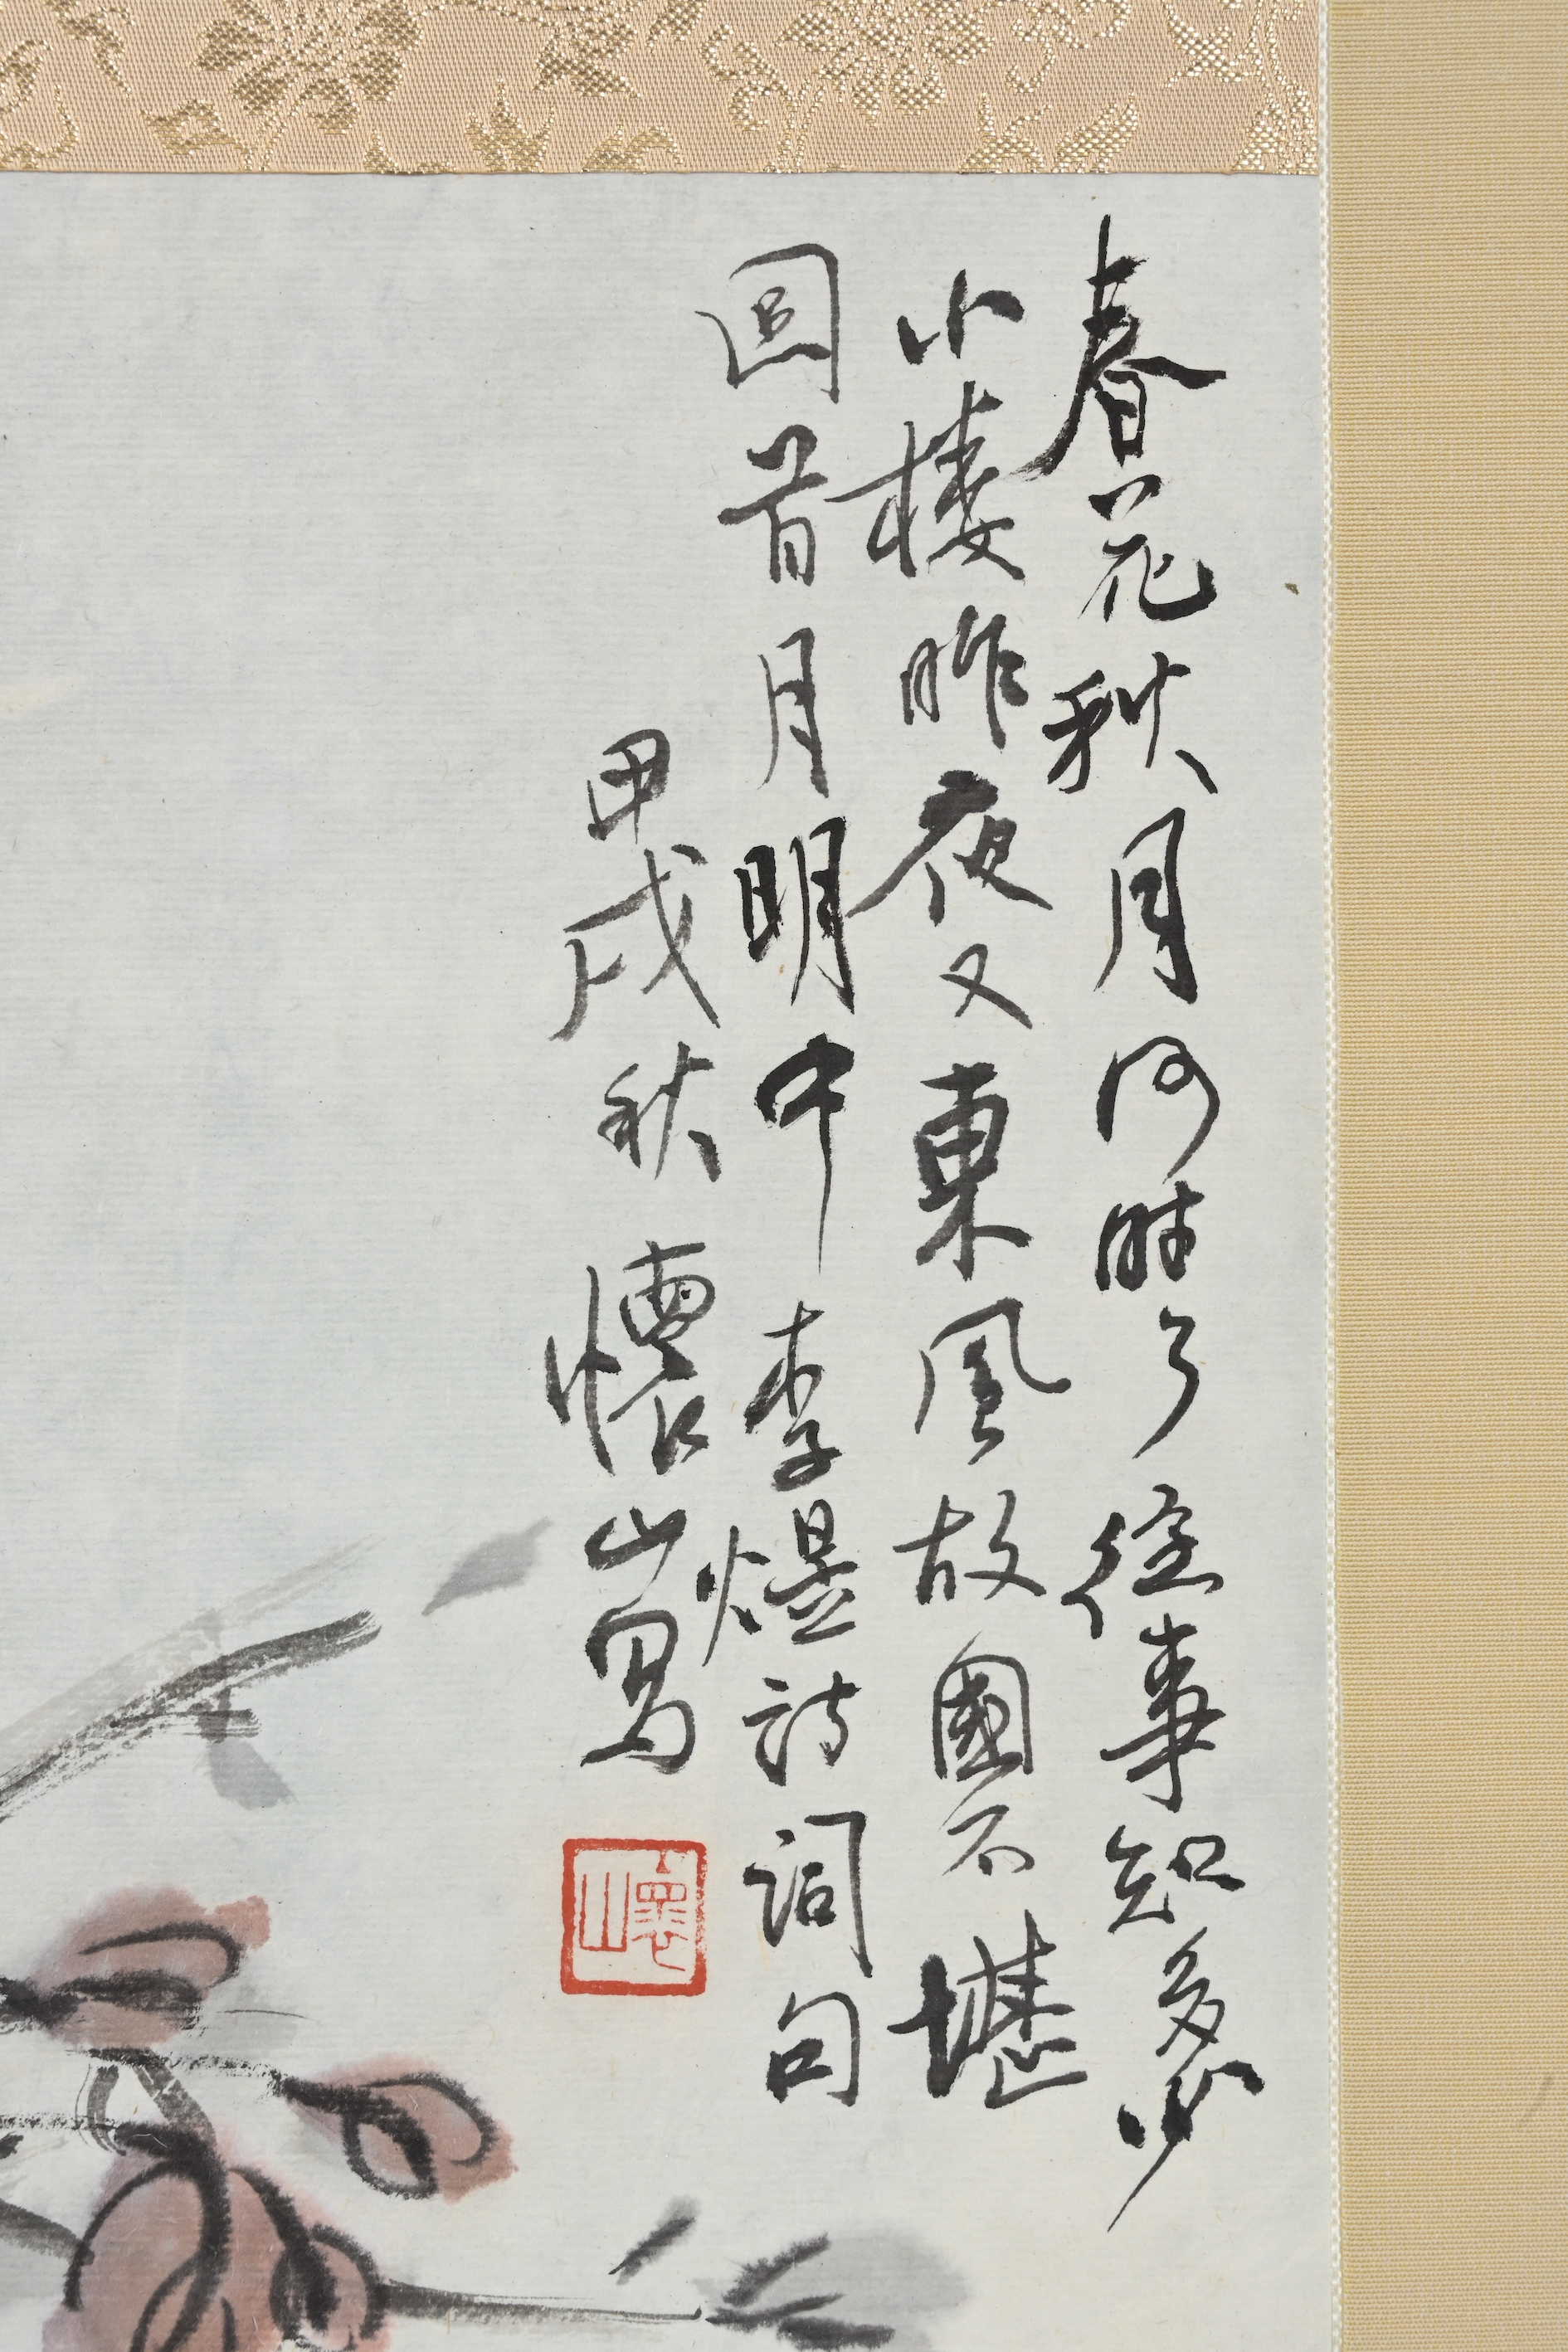 春花秋月何時了往事知多少
小楼昨夜又東風故國不堪
回首月明中李煜詩詞句
甲戌秋懷山写
懷山